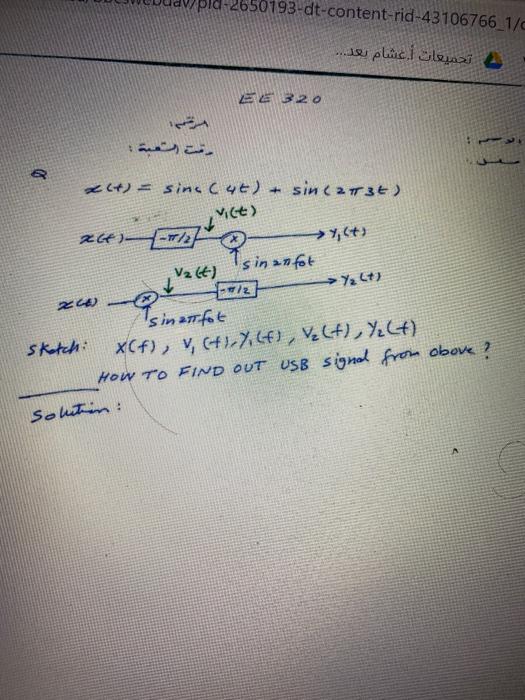 pid-2650193-dt-content-rid-43106766_1/
تجميعات أ.غشام بعد...
EE 320
Q
x(t) = sinc(4t) + sin(2π3t)
v₁(t)
x(t) -π/2 x y₁(t)
sin 2πfot
v₂(t)
x(t) x -π/2 y₂(t)
sin 2πfot
Sketch: X(f), V₁(f), Y₁(f), V₂(f), Y₂(f)
HOW TO FIND OUT USB signal from above?
Solution: